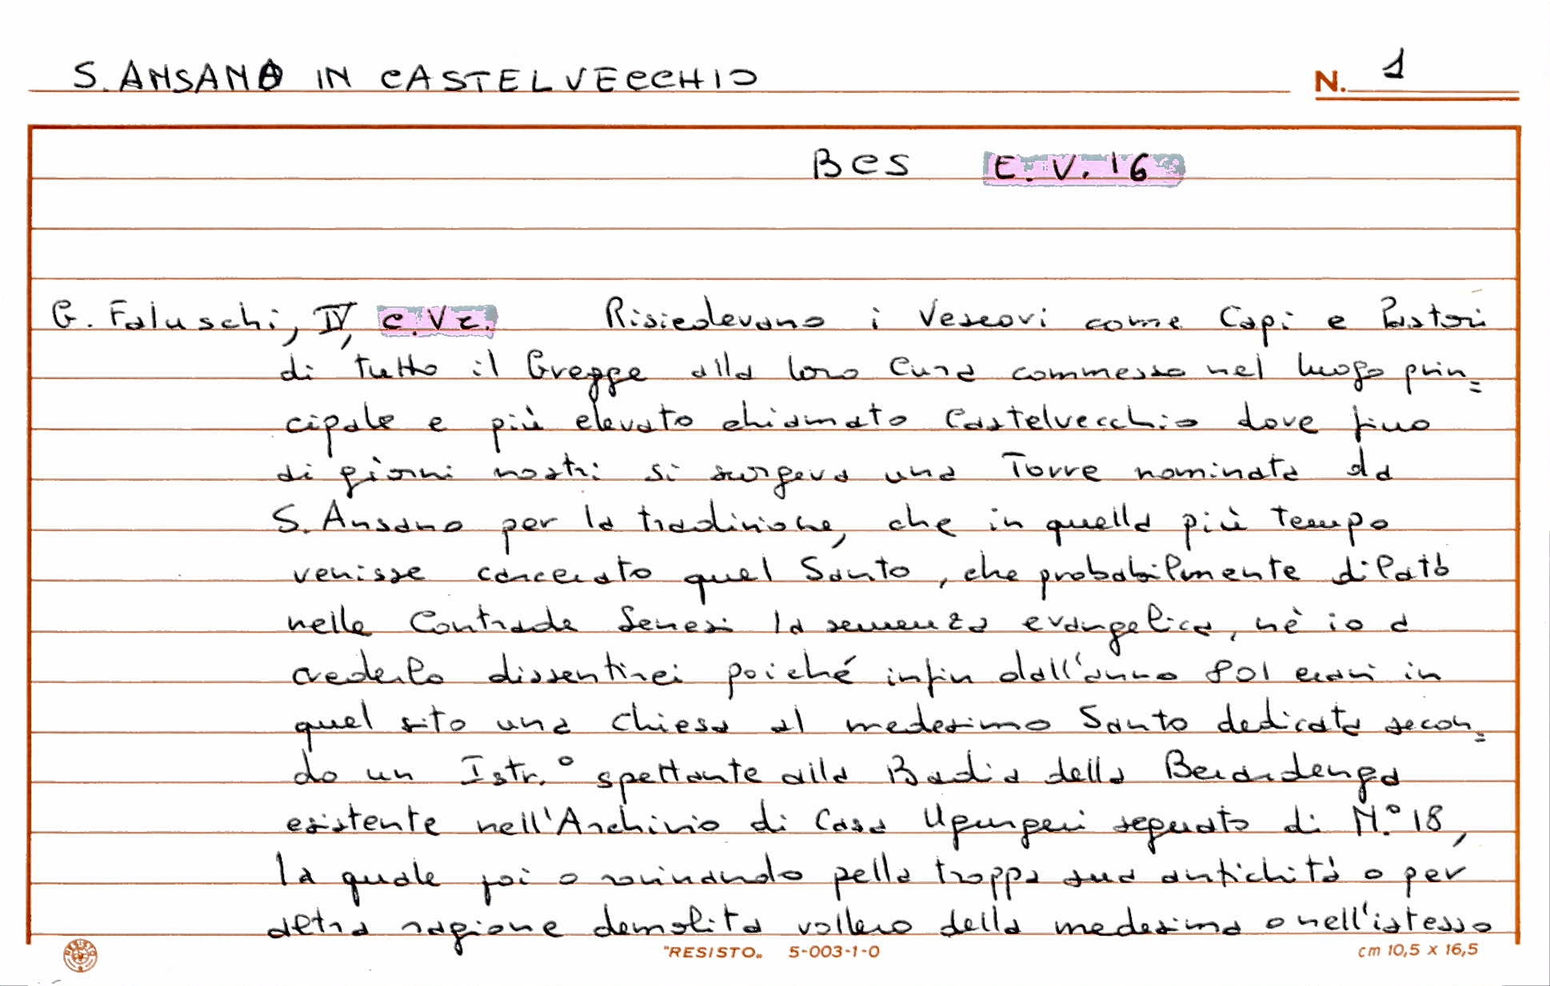 S. ANSANO IN CASTELVECCHIO N. 1
BCS E. V. 16
G. Faluschi, IV, c. V r. Risiedevano i Vescovi come Capi e Pastori
di tutto il Gregge alla loro Cura commesso nel luogo prin=
cipale e più elevato chiamato Castelvecchio dove fino
ai giorni nostri si surgeva una Torre nominata da
S. Ansano per la tradizione, che in quella più tempo
venisse carcerato quel Santo, che probabilmente dilatò
nelle Contrade Senesi la semenza evangelica, nè io a
crederlo dissentirei poiché infin dall'anno 801 eravi in
quel sito una Chiesa al medesimo Santo dedicata secon=
do un Istr.º spettante alla Badia della Berardenga
esistente nell'Archivio di Casa Ugurgeri segnato di N.º 18,
la quale poi o rovinando pella troppa sua antichità o per
altra ragione demolita vollero della medesima o nell'istesso
"RESISTO" 5-003-1-0 cm 10,5 x 16,5